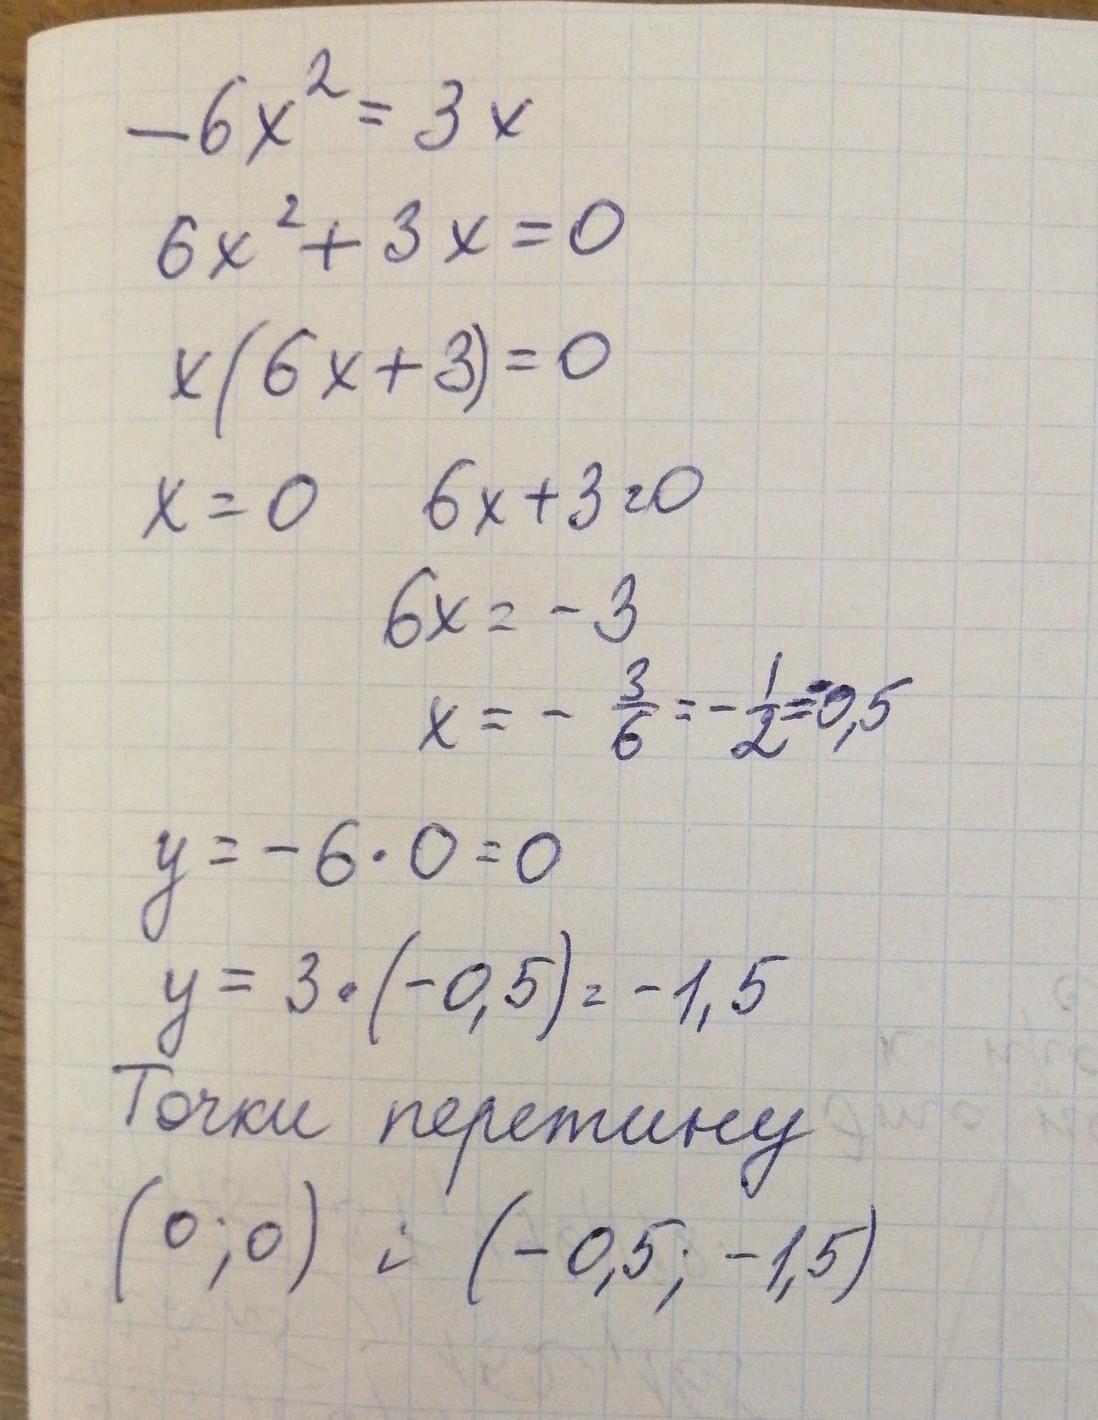 -6x² = 3x
6x² + 3x = 0
x(6x+3) = 0
x = 0 6x+3=0
6x = -3
x = - 3/6 = - 1/2 = -0,5
y = -6·0 = 0
y = 3·(-0,5) = -1,5
Точки перетину
(0;0) і (-0,5; -1,5)